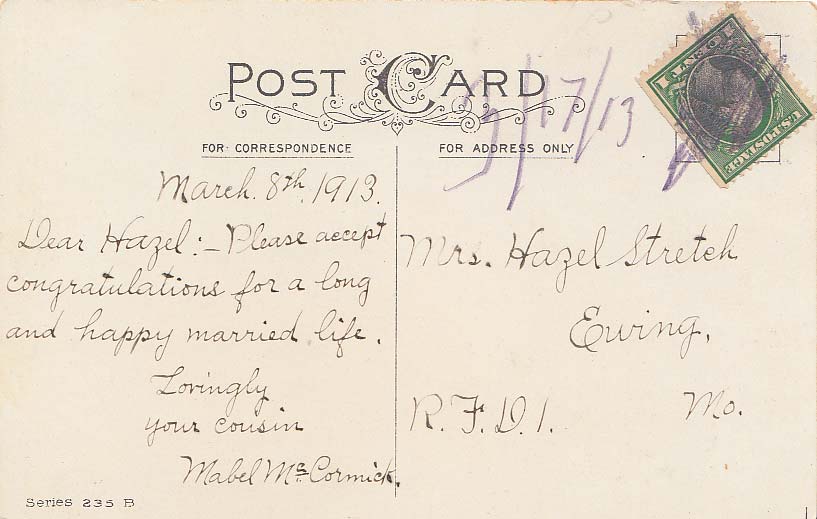 POST CARD
3/17/13
FOR CORRESPONDENCE
FOR ADDRESS ONLY
March. 8th, 1913.
Dear Hazel:- Please accept
congratulations for a long
and happy married life.
Lovingly
your cousin
Mabel McCormick.
Mrs. Hazel Stretch
Ewing,
R.F.D.1. Mo.
Series 235 B
U.S. POSTAGE